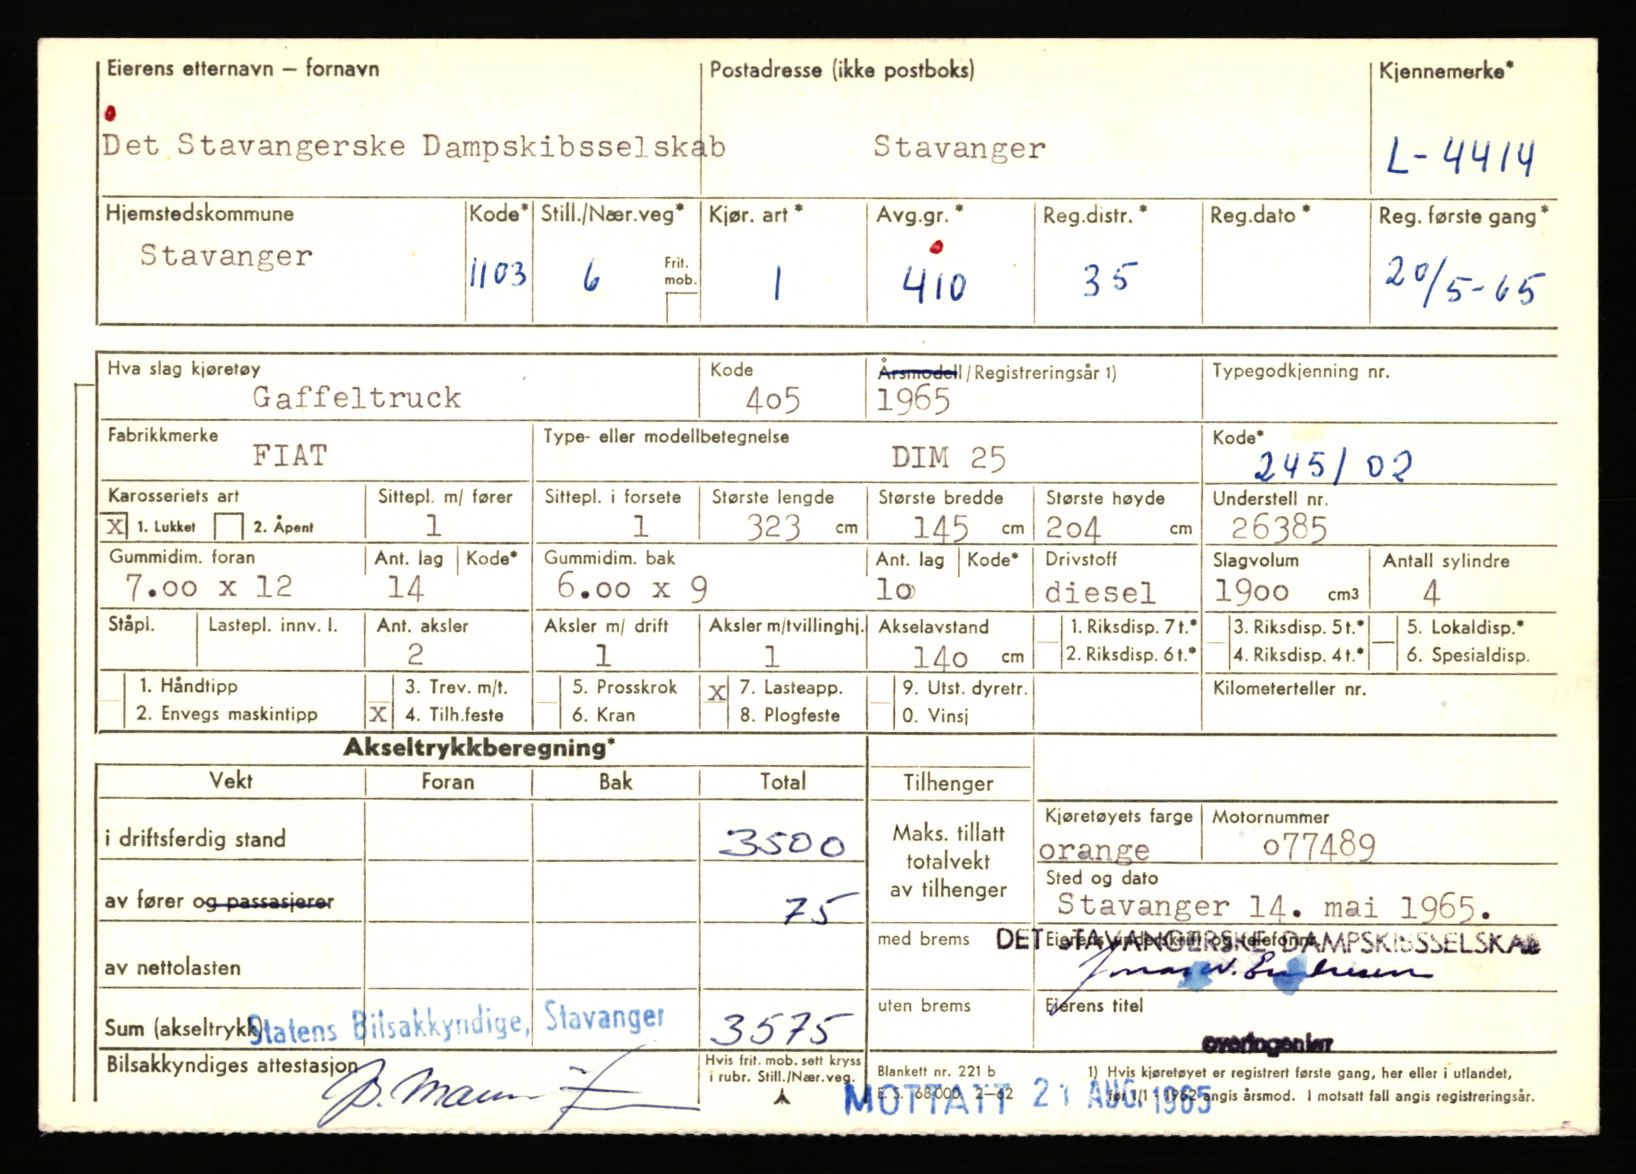 Eierens etternavn – fornavn Postadresse (ikke postboks) Kjennemerke*
Det Stavangerske Dampskibsselskab Stavanger L-4414
Hjemstedskommune Kode* Still./Nær.veg* Kjør. art* Avg.gr.* Reg.distr.* Reg.dato* Reg. første gang*
Stavanger 1103 6 Frit. mob. 1 410 35 20/5-65
Hva slag kjøretøy Kode Årsmodell/Registreringsår 1) Typegodkjenning nr.
Gaffeltruck 4o5 1965
Fabrikkmerke Type- eller modellbetegnelse Kode*
FIAT DIM 25 245/02
Karosseriets art Sittepl. m/ fører Sittepl. i forsete Største lengde Største bredde Største høyde Understell nr.
X 1. Lukket 2. Åpent 1 1 323 cm 145 cm 2o4 cm 26385
Gummidim. foran Ant. lag Kode* Gummidim. bak Ant. lag Kode* Drivstoff Slagvolum Antall sylindre
7.oo x 12 14 6.oo x 9 1o diesel 19oo cm3 4
Ståpl. Lastepl. innv. l. Ant. aksler Aksler m/ drift Aksler m/tvillinghj. Akselavstand 1. Riksdisp. 7 t.* 3. Riksdisp. 5 t.* 5. Lokaldisp.*
2 1 1 14o cm 2. Riksdisp. 6 t.* 4. Riksdisp. 4 t.* 6. Spesialdisp.
1. Håndtipp 3. Trev. m/t. 5. Prosskrok x 7. Lasteapp. 9. Utst. dyretr. Kilometerteller nr.
2. Envegs maskintipp X 4. Tilh.feste 6. Kran 8. Plogfeste 0. Vinsj
Akseltrykkberegning*
Vekt Foran Bak Total Tilhenger
Kjøretøyets farge Motornummer
i driftsferdig stand 3500 Maks. tillatt totalvekt av tilhenger orange o77489
Sted og dato
av fører og passasjerer 75 Stavanger 14. mai 1965.
med brems Eierens underskrift og telefonnr.
DET STAVANGERSKE DAMPSKIBSSELSKAB
av nettolasten
uten brems Eierens titel
Sum (akseltrykk) Statens Bilsakkyndige, Stavanger 3575
overingeniør
Bilsakkyndiges attestasjon Hvis frit. mob. sett kryss i rubr. Still./Nær.veg. Blankett nr. 221 b 1) Hvis kjøretøyet er registrert første gang, her eller i utlandet,
E. S. 68000. 2–62 før 1/1 - 1962 angis årsmod. I motsatt fall angis registreringsår.
MOTTATT 21 AUG. 1965